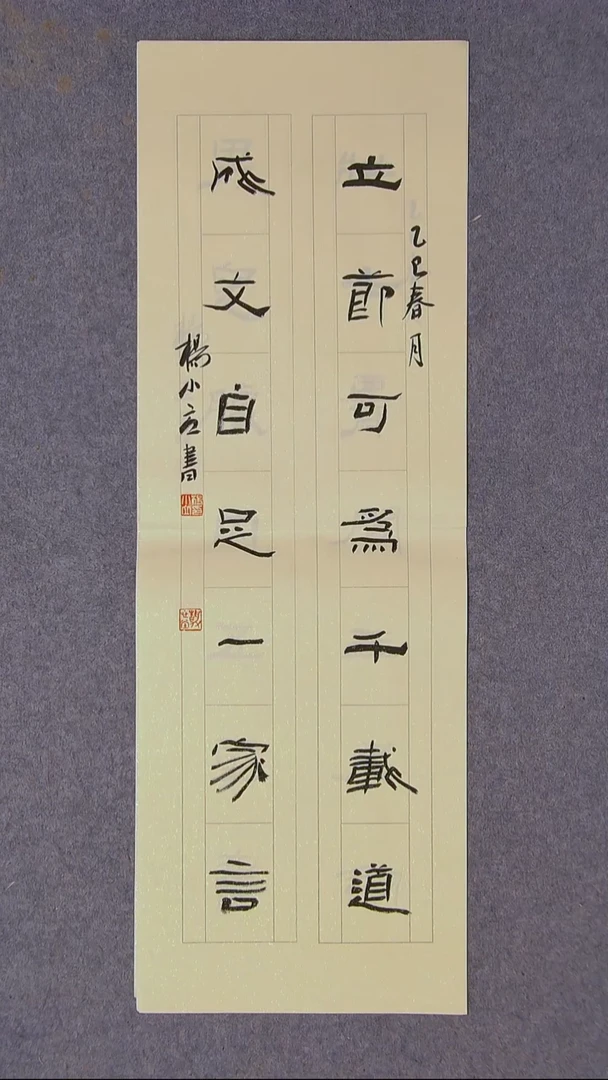 立節可爲千載道
乙巳春月
成文自足一家言
楊小 書